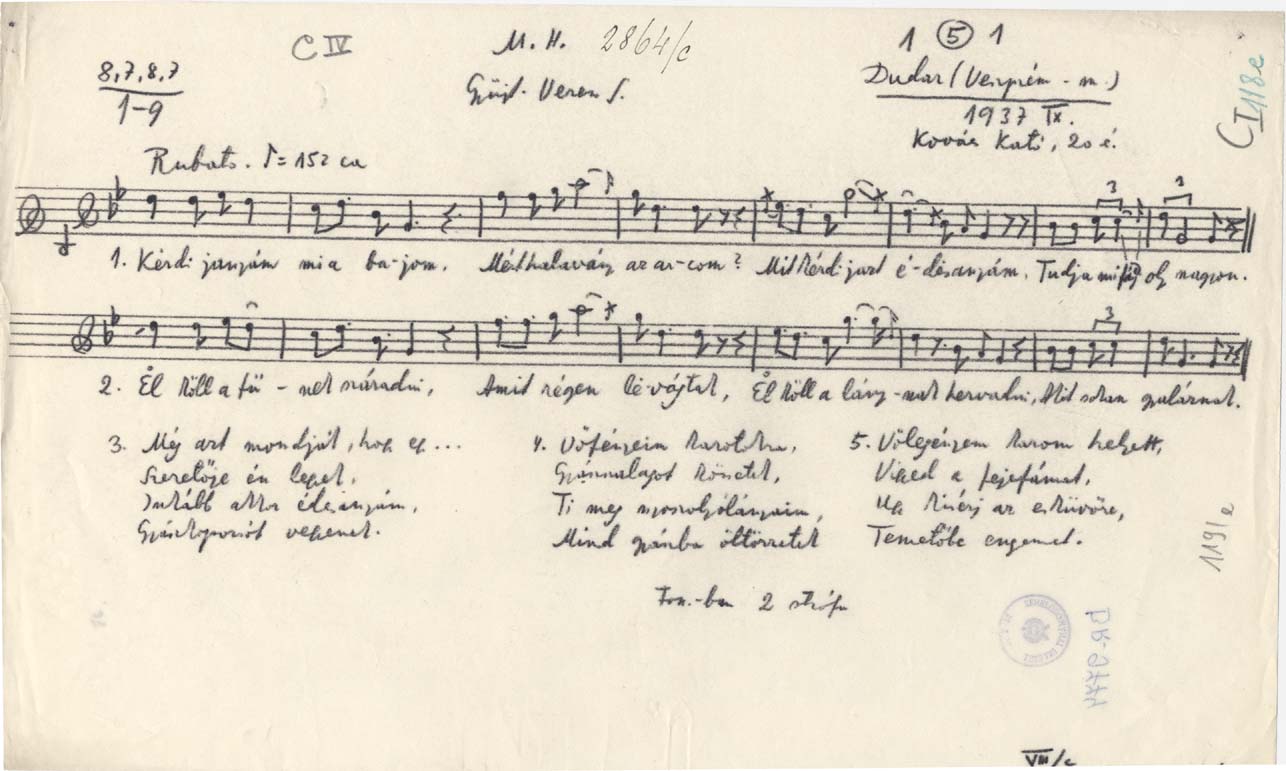 C IV
M. H. 2864/c
1 ⑤ 1
8,7,8,7
1-9
Gyűjt. Veress S.
Dudar (Veszprém - m.)
1937 IX.
Kovács Kati, 20 é.
C I 118e
Rubato. ♪= 152 ca
3 3
1. Kérdi janyám mi a ba-jom, Mért halavány az ar-com? Mit kérdi azt é-désanyám, Tudja mi oly nagyon.
3
2. Él köll a fű - nek száradni, Amit régen lé-vágtak, Él köll a lány-nak hervadni, Akit sokan gyaláznak.
3. Még azt mondják, hogy egy ...
Szeretője én legyek,
Inkább akkor édesanyám,
Gyászkoporsót vegyenek.
4. Vőfényeim karotokra,
Gyászszalagot kössetek,
Ti meg nyoszolyólányaim,
Mind gyászba öltözzetek
5. Vőlegényem karom helyett,
Viked a fejefámat,
Úgy kisérj az esküvőre,
Temetőbe engemet.
119/e
Fon.-ban 2 strófa
VIII/c